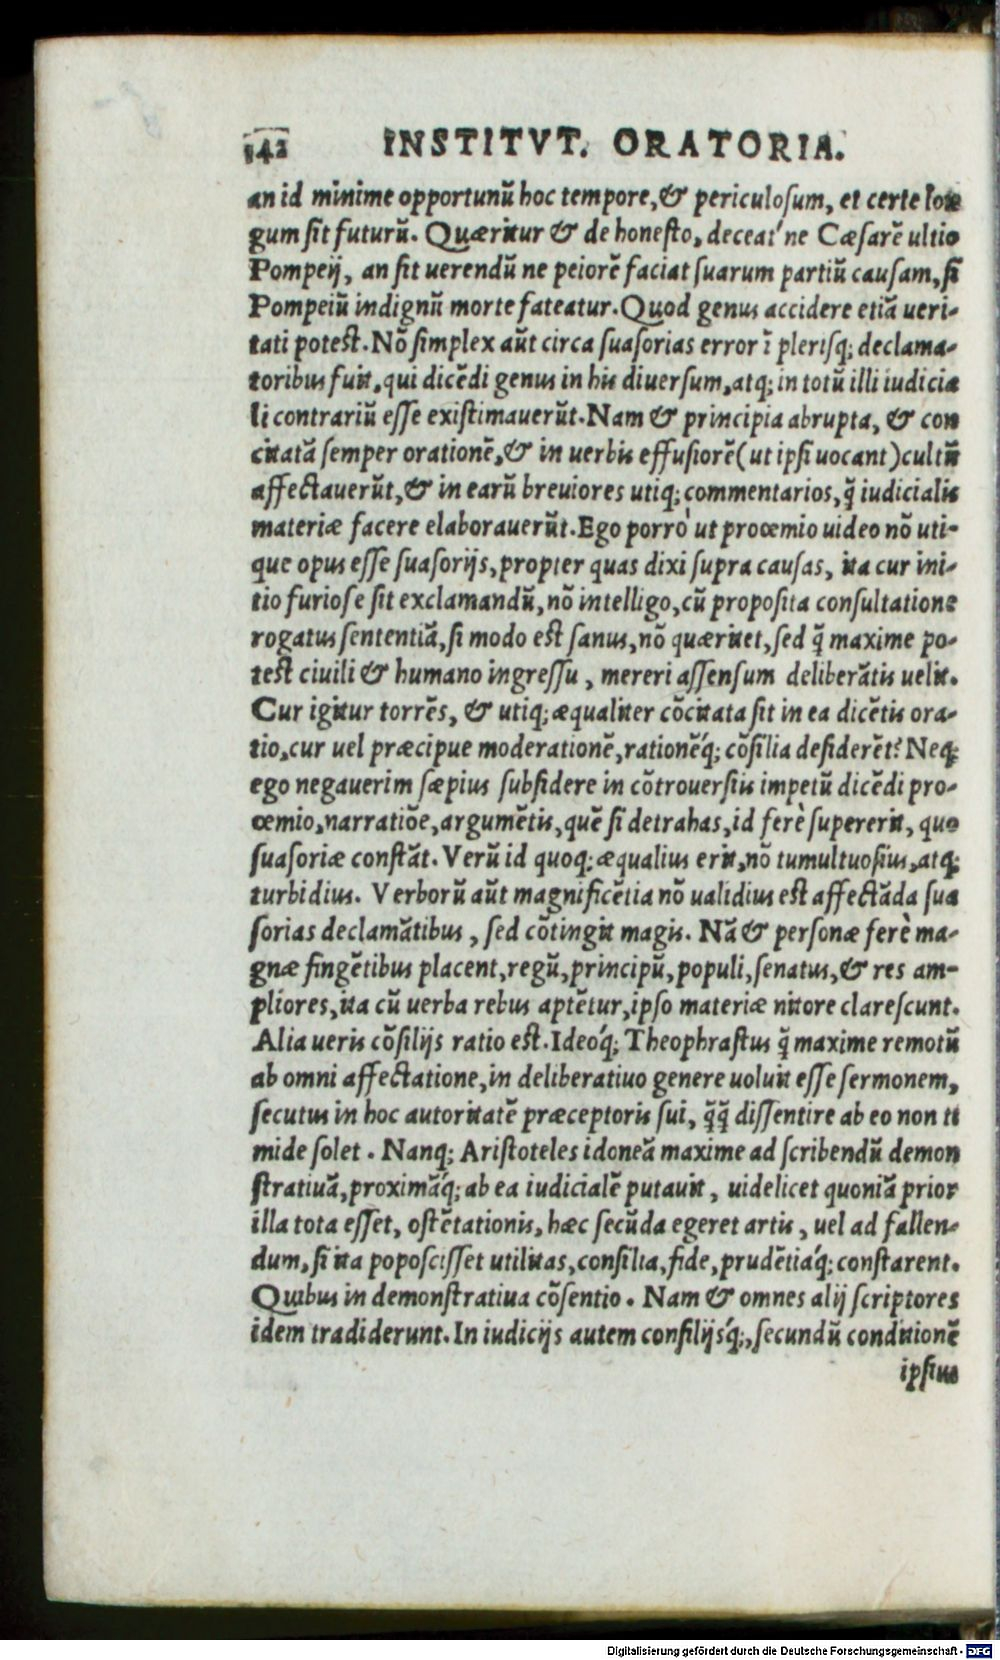 142 INSTITVT. ORATORIA.
an id minime opportunũ hoc tempore, & periculosum, et certe lon
gum sit futurũ. Quæritur & de honesto, deceat'ne Cæsarẽ ultio
Pompeij, an sit uerendũ ne peiorẽ faciat suarum partiũ causam, si
Pompeiũ indignũ morte fateatur. Quod genus accidere etiã ueri-
tati potest. Nõ simplex aũt circa suasorias error ĩ plerisq; declama-
toribus fuit, qui dicẽdi genus in his diuersum, atq; in totũ illi iudicia
li contrariũ esse existimauerũt. Nam & principia abrupta, & con
citatã semper orationẽ, & in uerbis effusiorẽ (ut ipsi uocant) cultũ
affectauerũt, & in earũ breuiores utiq; commentarios, q̃ iudicialis
materiæ facere elaborauerũt. Ego porrò ut proœmio uideo nõ uti-
que opus esse suasorijs, propter quas dixi supra causas, ita cur ini-
tio furiose sit exclamandũ, nõ intelligo, cũ proposita consultatione
rogatus sententiã, si modo est sanus, nõ quæritet, sed q̃ maxime po-
test ciuili & humano ingressu, mereri assensum deliberãtis uelit.
Cur igitur torrẽs, & utiq; æqualiter cõcitata sit in ea dicẽtis ora-
tio, cur uel præcipue moderationẽ, rationẽq́; cõsilia desiderẽt? Neq;
ego negauerim sæpius subsidere in cõtrouersiis impetũ dicẽdi pro-
œmio, narratiõe, argumẽtis, quẽ si detrahas, id ferè supererit, quo
suasoriæ constãt. Verũ id quoq; æqualius erit, nõ tumultuosius, atq;
turbidius. Verborũ aũt magnificẽtia nõ ualidius est affectãda sua
sorias declamãtibus, sed cõtingit magis. Nã & personæ ferè ma-
gnæ fingẽtibus placent, regũ, principũ, populi, senatus, & res am-
pliores, ita cũ uerba rebus aptẽtur, ipso materiæ nitore clarescunt.
Alia ueris cõsilijs ratio est. Ideoq́; Theophrastus q̃ maxime remotũ
ab omni affectatione, in deliberatiuo genere uoluit esse sermonem,
secutus in hoc autoritatẽ præceptoris sui, q̃q̃ dissentire ab eo non ti
mide solet. Nanq; Aristoteles idoneã maxime ad scribendũ demon
stratiuã, proximãq́; ab ea iudicialẽ putauit, uidelicet quoniã prior
illa tota esset, ostẽtationis, hæc secũda egeret artis, uel ad fallen-
dum, si ita poposcisset utilitas, consilia, fide, prudẽtiaq́; constarent.
Quibus in demonstratiua cõsentio. Nam & omnes alij scriptores
idem tradiderunt. In iudicijs autem consilijsq́;, secundũ conditionẽ
ipsius
Digitalisierung gefördert durch die Deutsche Forschungsgemeinschaft - DFG